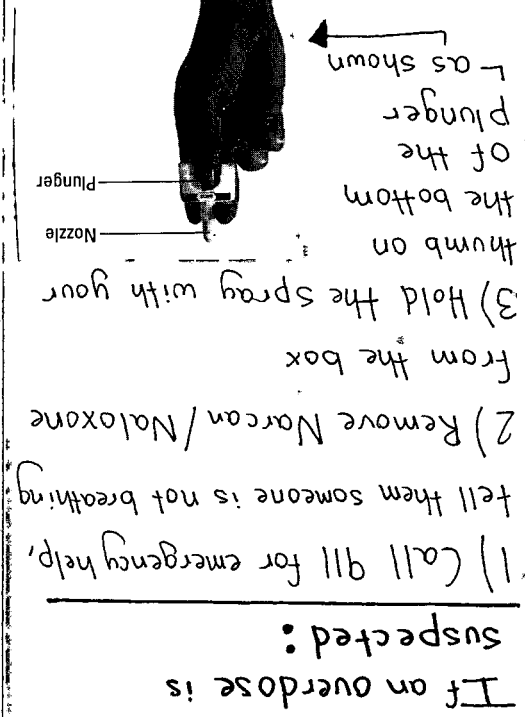 If an overdose is
suspected:
1) Call 911 for emergency help,
tell them someone is not breathing
2) Remove Narcan/Naloxone
from the box
3) Hold the spray with your
thumb on
the bottom
of the
plunger
as shown
Nozzle
Plunger